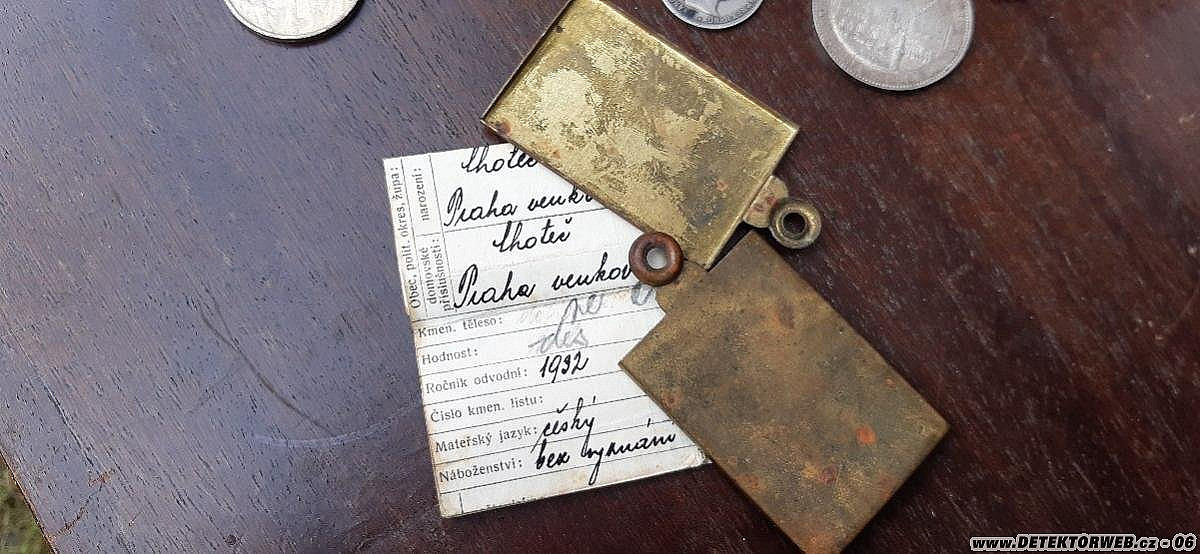 Obec, polit. okres, župa:
narození:
Choteč
Praha venkov
domovské
příslušnosti:
Choteč
Praha venkov
Kmen. těleso:
Hodnost:
Ročník odvodní: 1932
Číslo kmen. listu:
Mateřský jazyk: český
Náboženství: bez vyznání
www.DETEKTORWEB.cz - 06